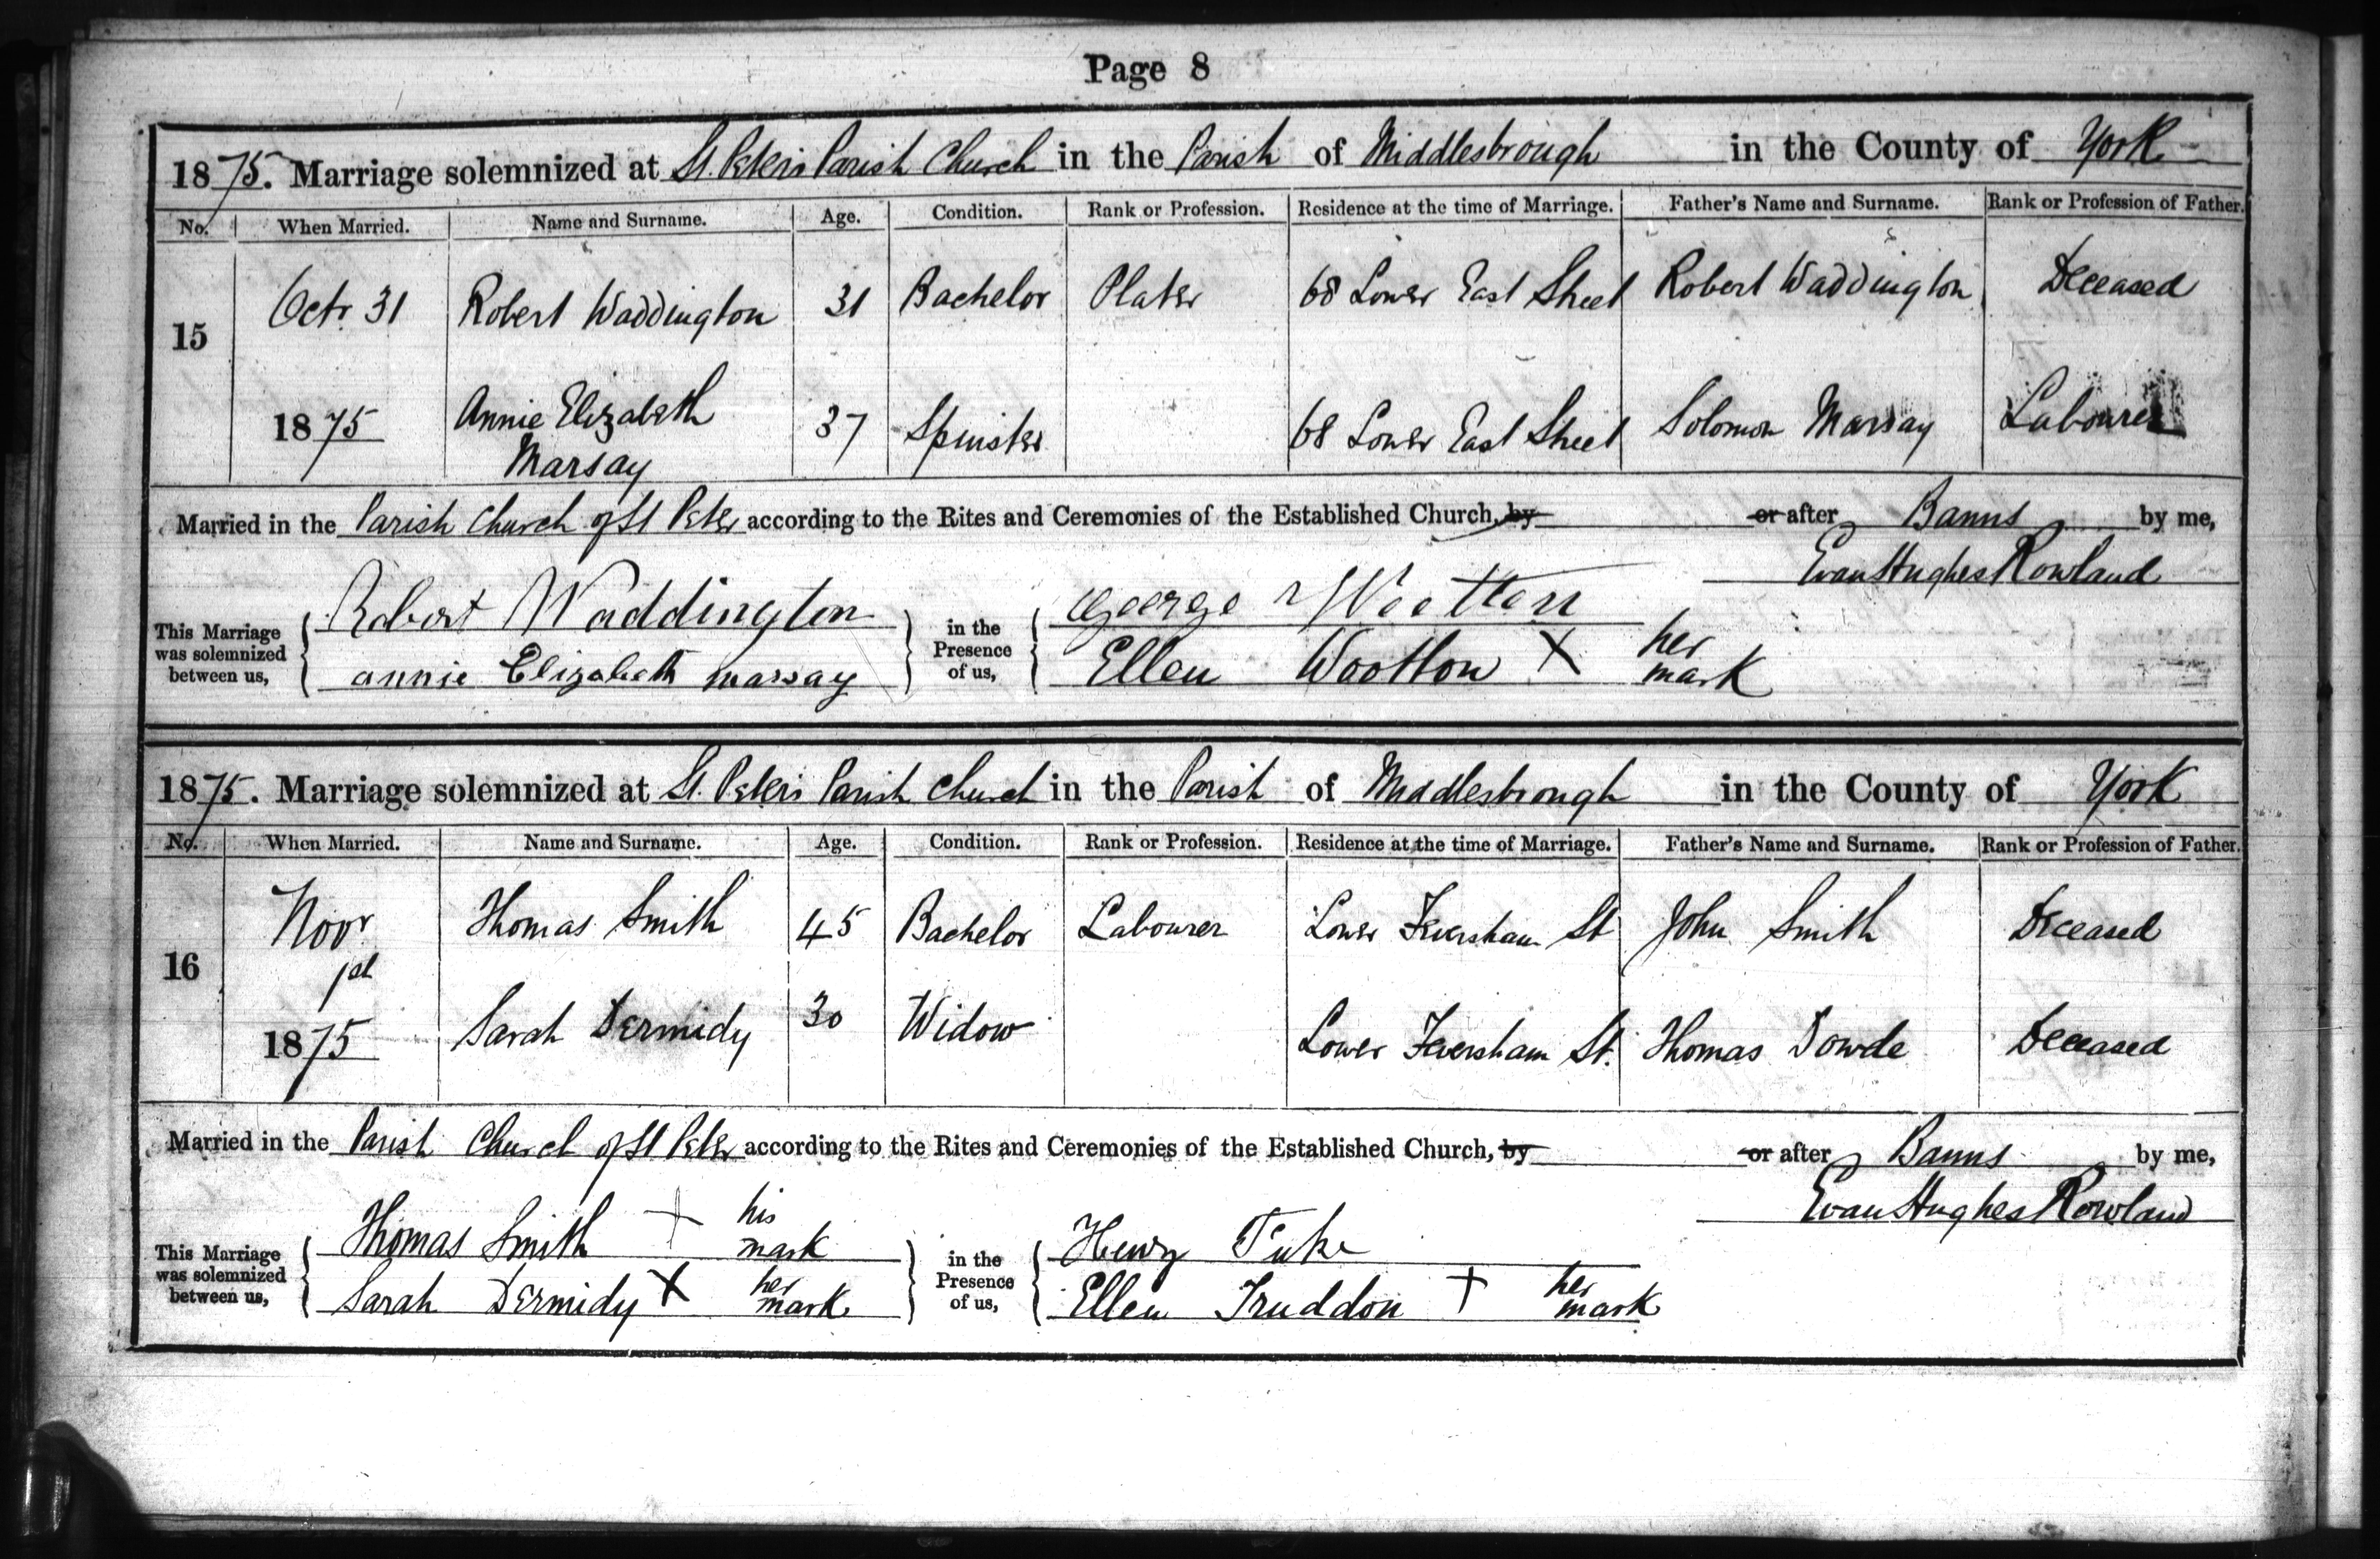 Page 8
1875. Marriage solemnized at St. Peter's Parish Church in the Parish of Middlesbrough in the County of York
No. When Married. Name and Surname. Age. Condition. Rank or Profession. Residence at the time of Marriage. Father's Name and Surname. Rank or Profession of Father.
15 Octr 31 Robert Waddington 31 Bachelor Plater 68 Lower East Street Robert Waddington Deceased
1875 Annie Elizabeth Marsay 37 Spinster 68 Lower East Street Solomon Marsay Labourer
Married in the Parish Church of St Peter according to the Rites and Ceremonies of the Established Church, by or after Banns by me,
Evan Hughes Rowland
This Marriage was solemnized between us, Robert Waddington in the Presence of us, George Wootton
annie Elizabeth marsay Ellen Wootton X her mark
1875. Marriage solemnized at St. Peter's Parish Church in the Parish of Middlesbrough in the County of York
No. When Married. Name and Surname. Age. Condition. Rank or Profession. Residence at the time of Marriage. Father's Name and Surname. Rank or Profession of Father.
16 Novr 1st Thomas Smith 45 Bachelor Labourer Lower Feversham St John Smith Deceased
1875 Sarah Dermidy 30 Widow Lower Feversham St. Thomas Dowde Deceased
Married in the Parish Church of St Peter according to the Rites and Ceremonies of the Established Church, by or after Banns by me,
Evan Hughes Rowland
This Marriage was solemnized between us, Thomas Smith + his mark in the Presence of us, Henry Tuke
Sarah Dermidy X her mark Ellen Truddon + her mark